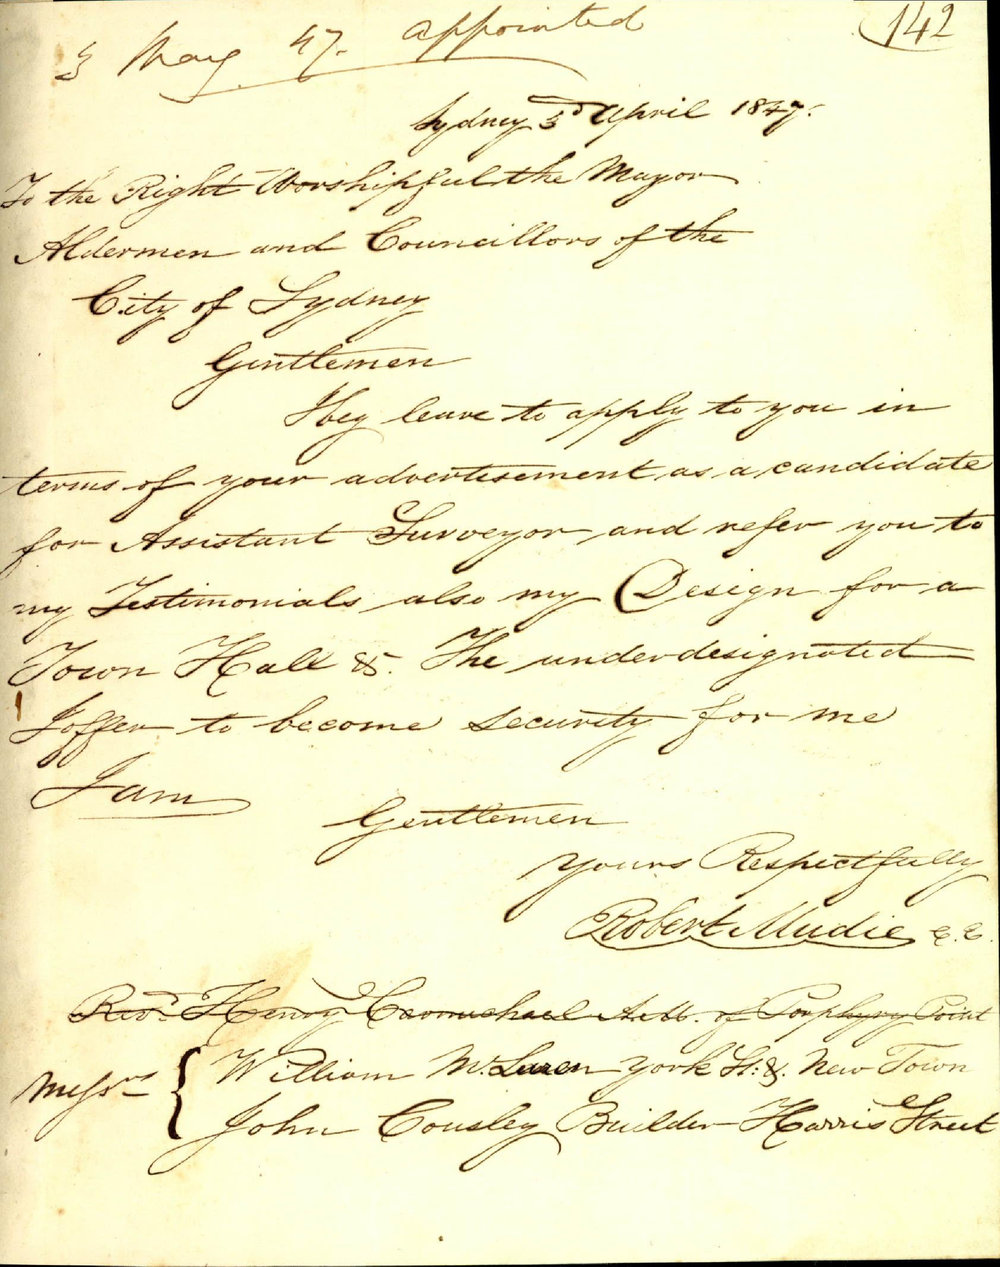 142
3 May 47. appointed
Sydney 3d April 1847.
To the Right Worshipful the Mayor
Aldermen and Councillors of the
City of Sydney
Gentlemen
I beg leave to apply to you in
terms of your advertisement as a candidate
for Assistant Surveyor and refer you to
my Testimonials also my Design for a
Town Hall &. The underdesignated
I offer to become security for me
I am
Gentlemen
Yours Respectfully
Robert Mudie C.E.
Revd. Henry Carmichael A.M. of Porphyry Point
Messrs { William McLaren York St: &. New Town
John Cousley Builder Harris Street